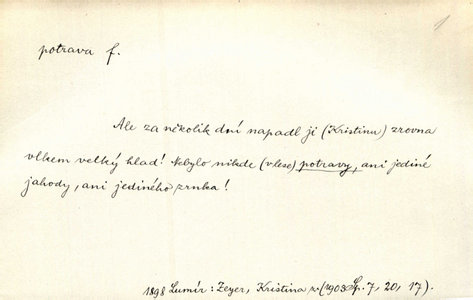 1
potrava f.
Ale za několik dní napadl ji (Kristinu) zrovna
vlkem velký hlad! Nebylo nikde (v lese) potravy, ani jediné
jahody, ani jediného zrnka!
1898 Lumír: Zeyer, Kristina (1903 Sp. 7, 20, 17).